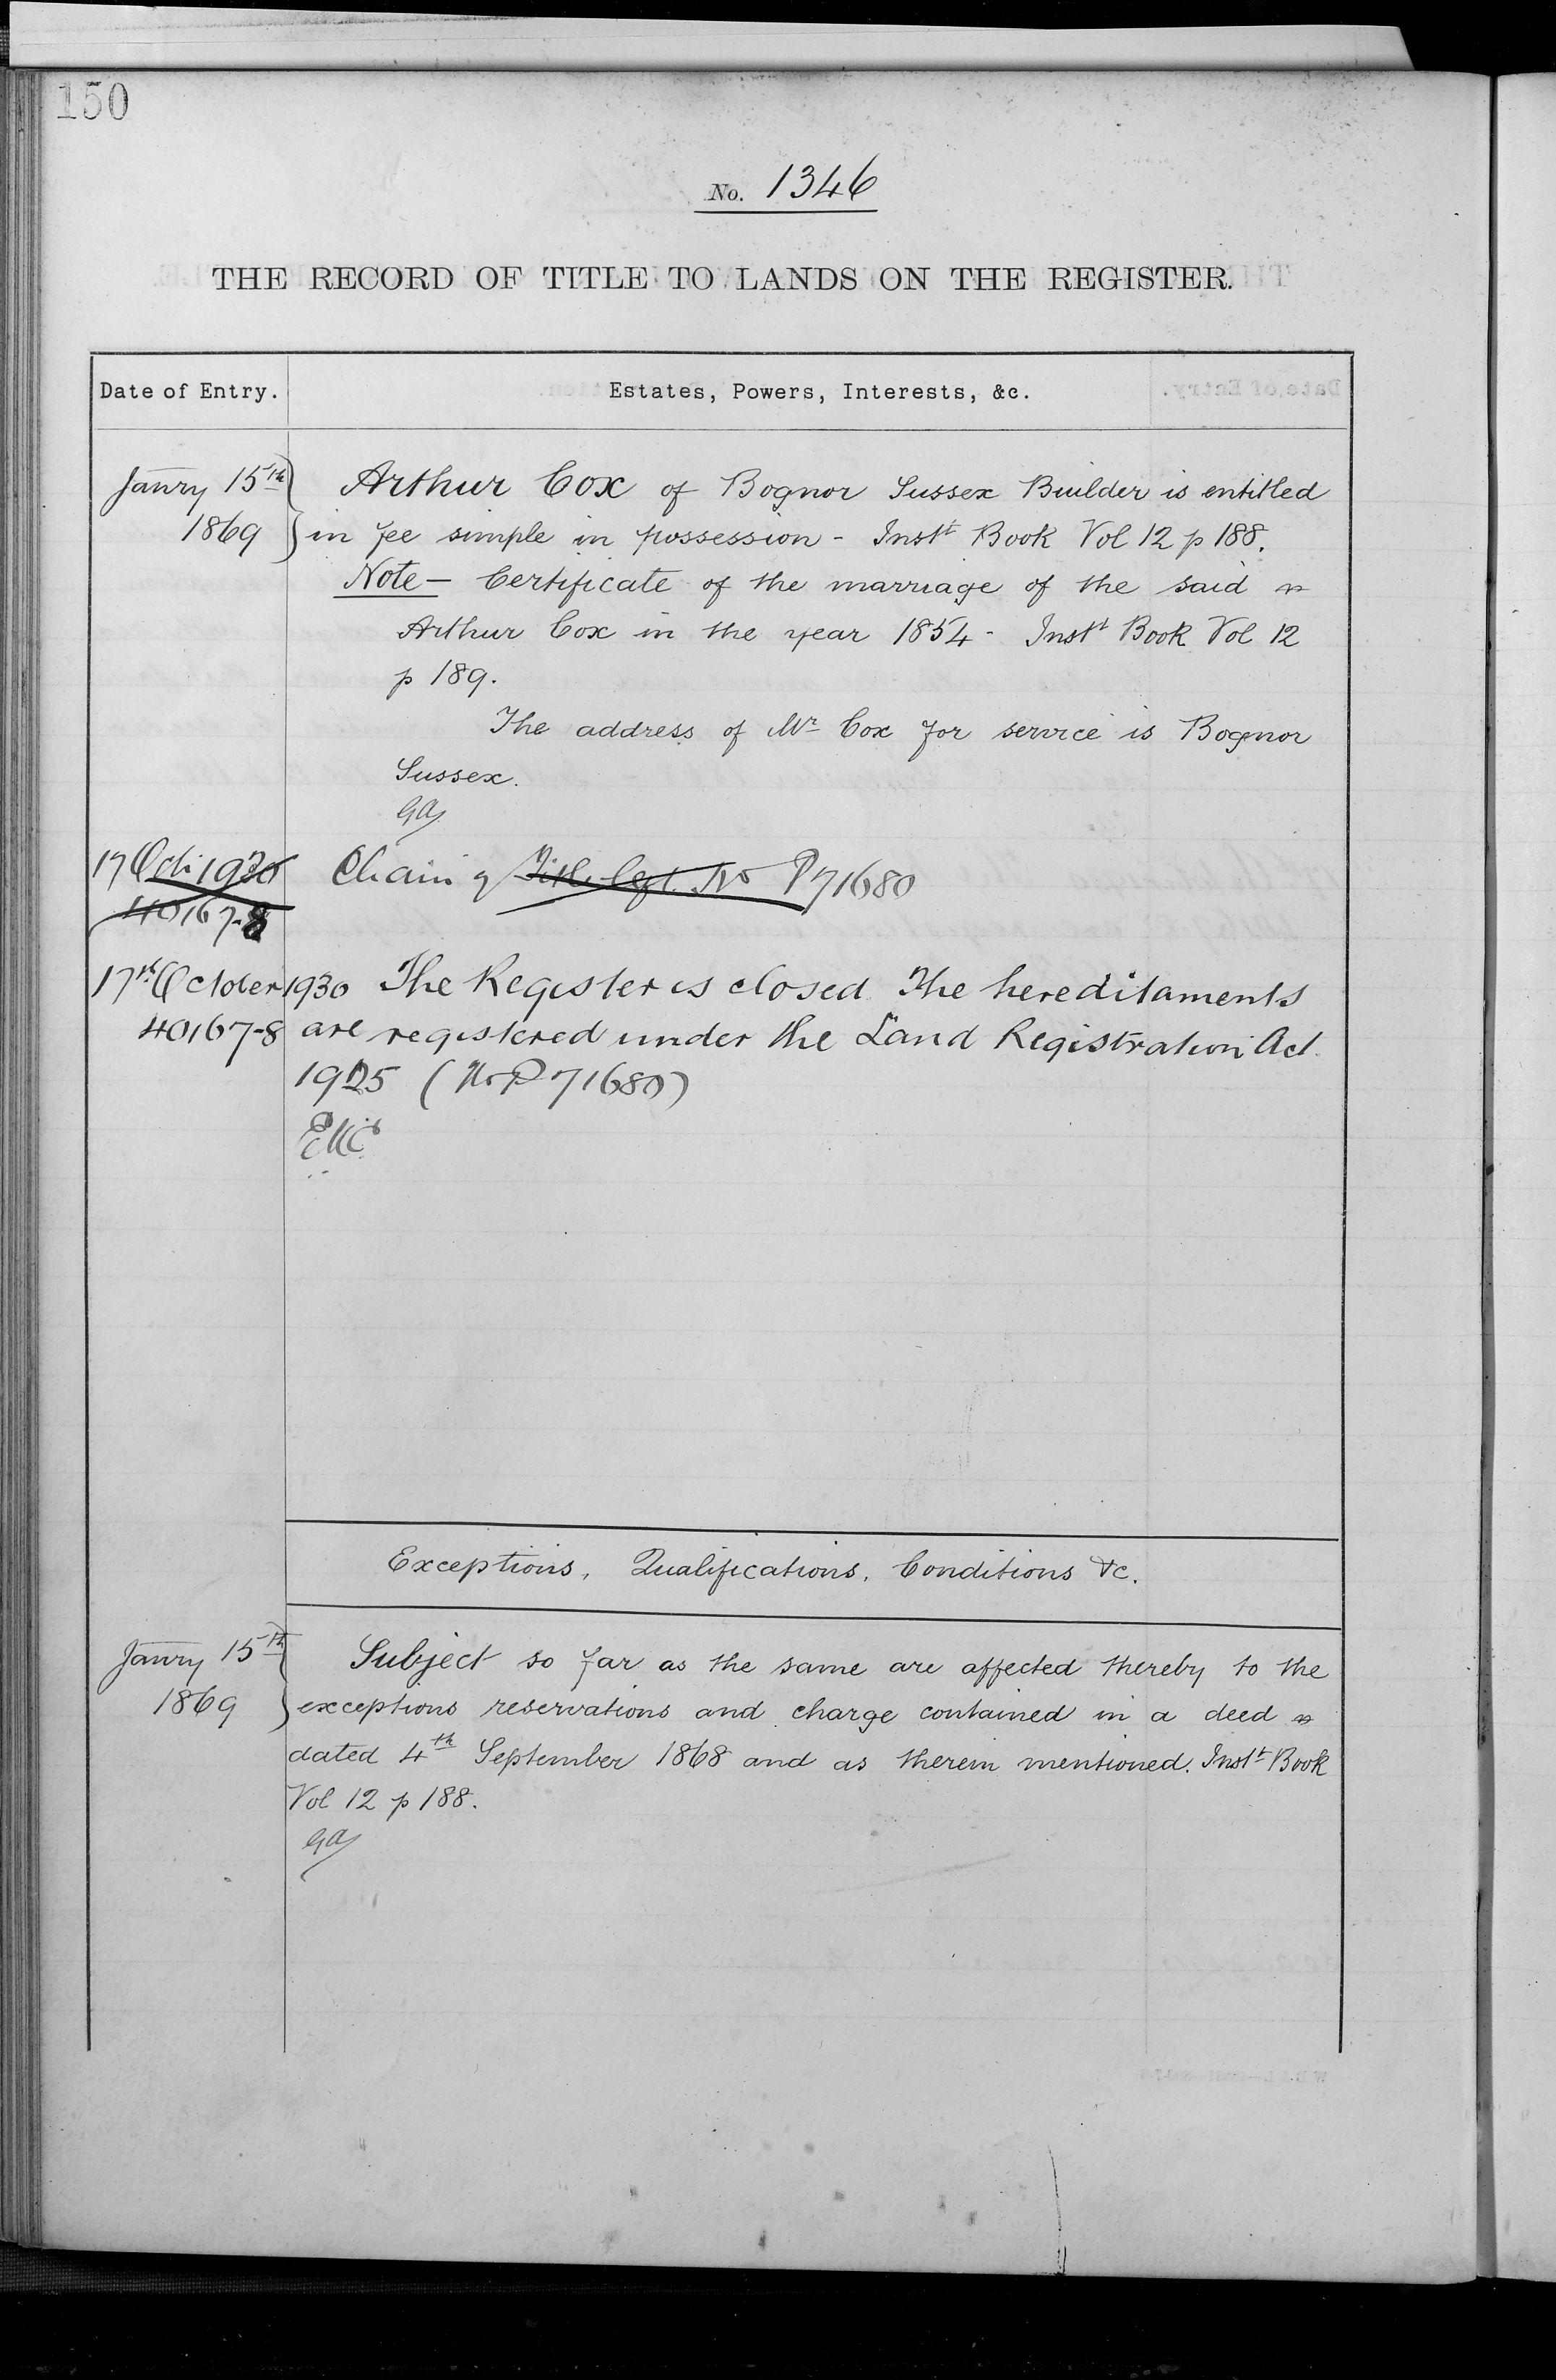 150
No. 1346
THE RECORD OF TITLE TO LANDS ON THE REGISTER.
Date of Entry. Estates, Powers, Interests, &c.
Janry 15th 1869
Arthur Cox of Bognor Sussex Builder is entitled
in fee simple in possession - Instt Book Vol 12 p 188.
Note - Certificate of the marriage of the said
Arthur Cox in the year 1854 - Instt Book Vol 12
p 189.
The address of Mr Cox for service is Bognor
Sussex.
GA
17 Oct 1930 Chain of Title No P71680
40167-8
17th October 1930 The Register is closed. The hereditaments
40167-8 are registered under the Land Registration Act
1925 (No P 71680)
Exceptions, Qualifications, Conditions &c.
Janry 15th 1869
Subject so far as the same are affected thereby to the
exceptions reservations and charge contained in a deed
dated 4th September 1868 and as therein mentioned. Instt Book
Vol 12 p 188.
GA